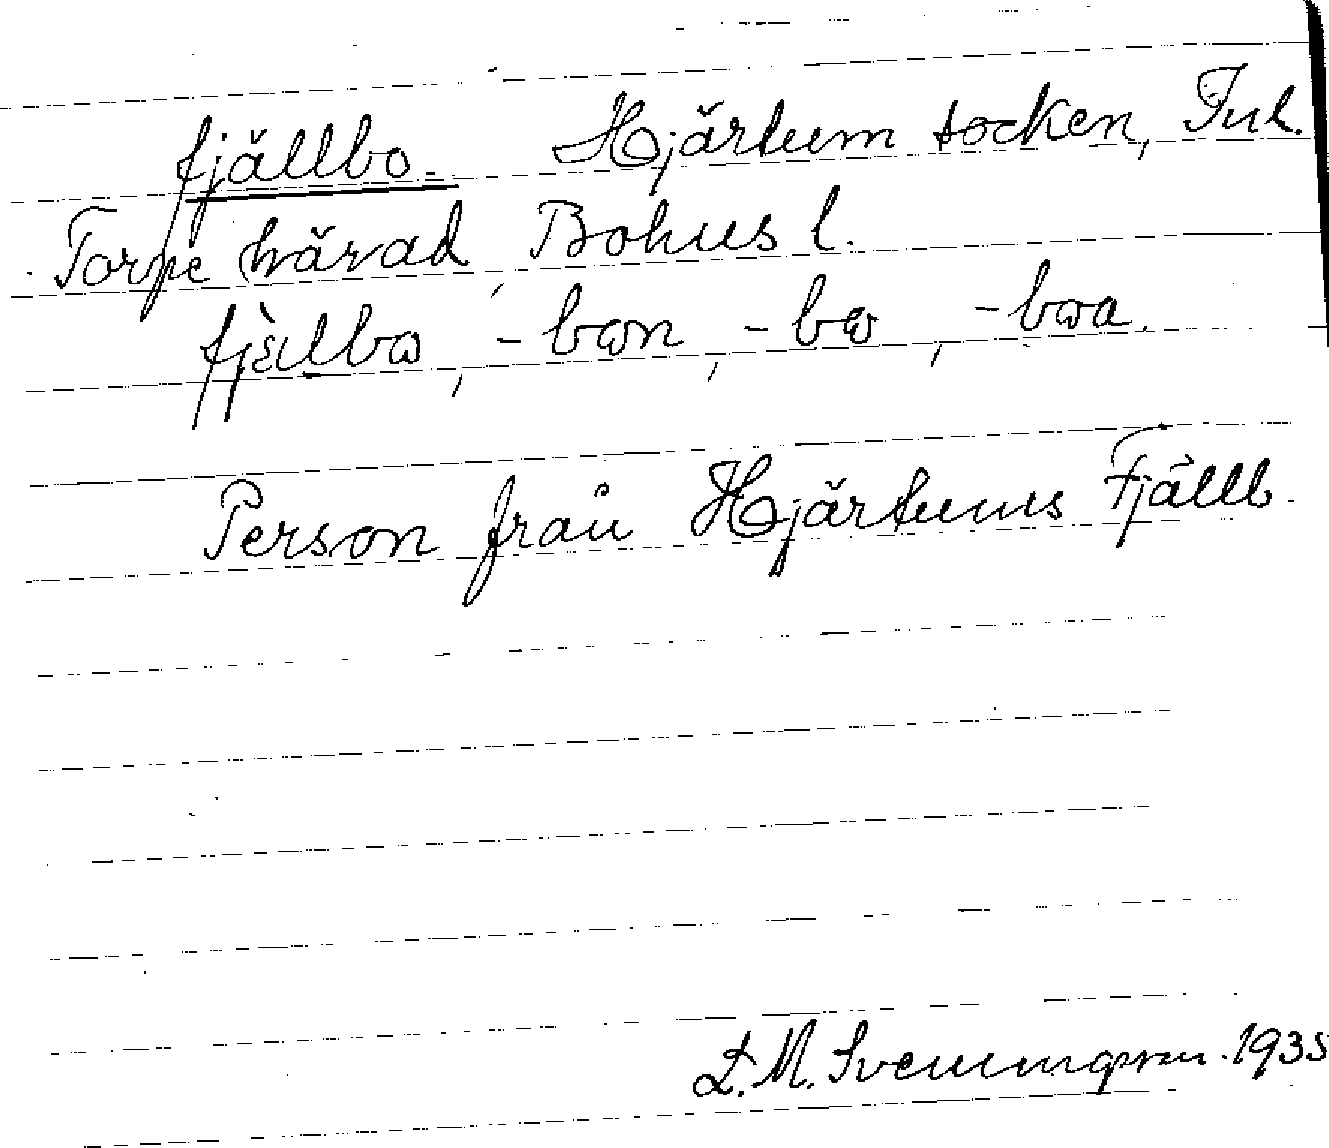 fjällbo. Hjärtum socken, Inl.
Torpe härad, Bohus l.
fjèllbω, -bωn, -bω, -bωa.
Person från Hjärtums Fjäll.
L.M. Svenungsson. 1935